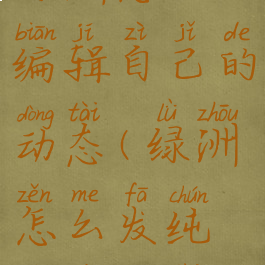 biān jí zì jǐ de
编辑自己的
dòng tài lǜ zhōu
动态(绿洲
zěn me fā chún
怎么发纯